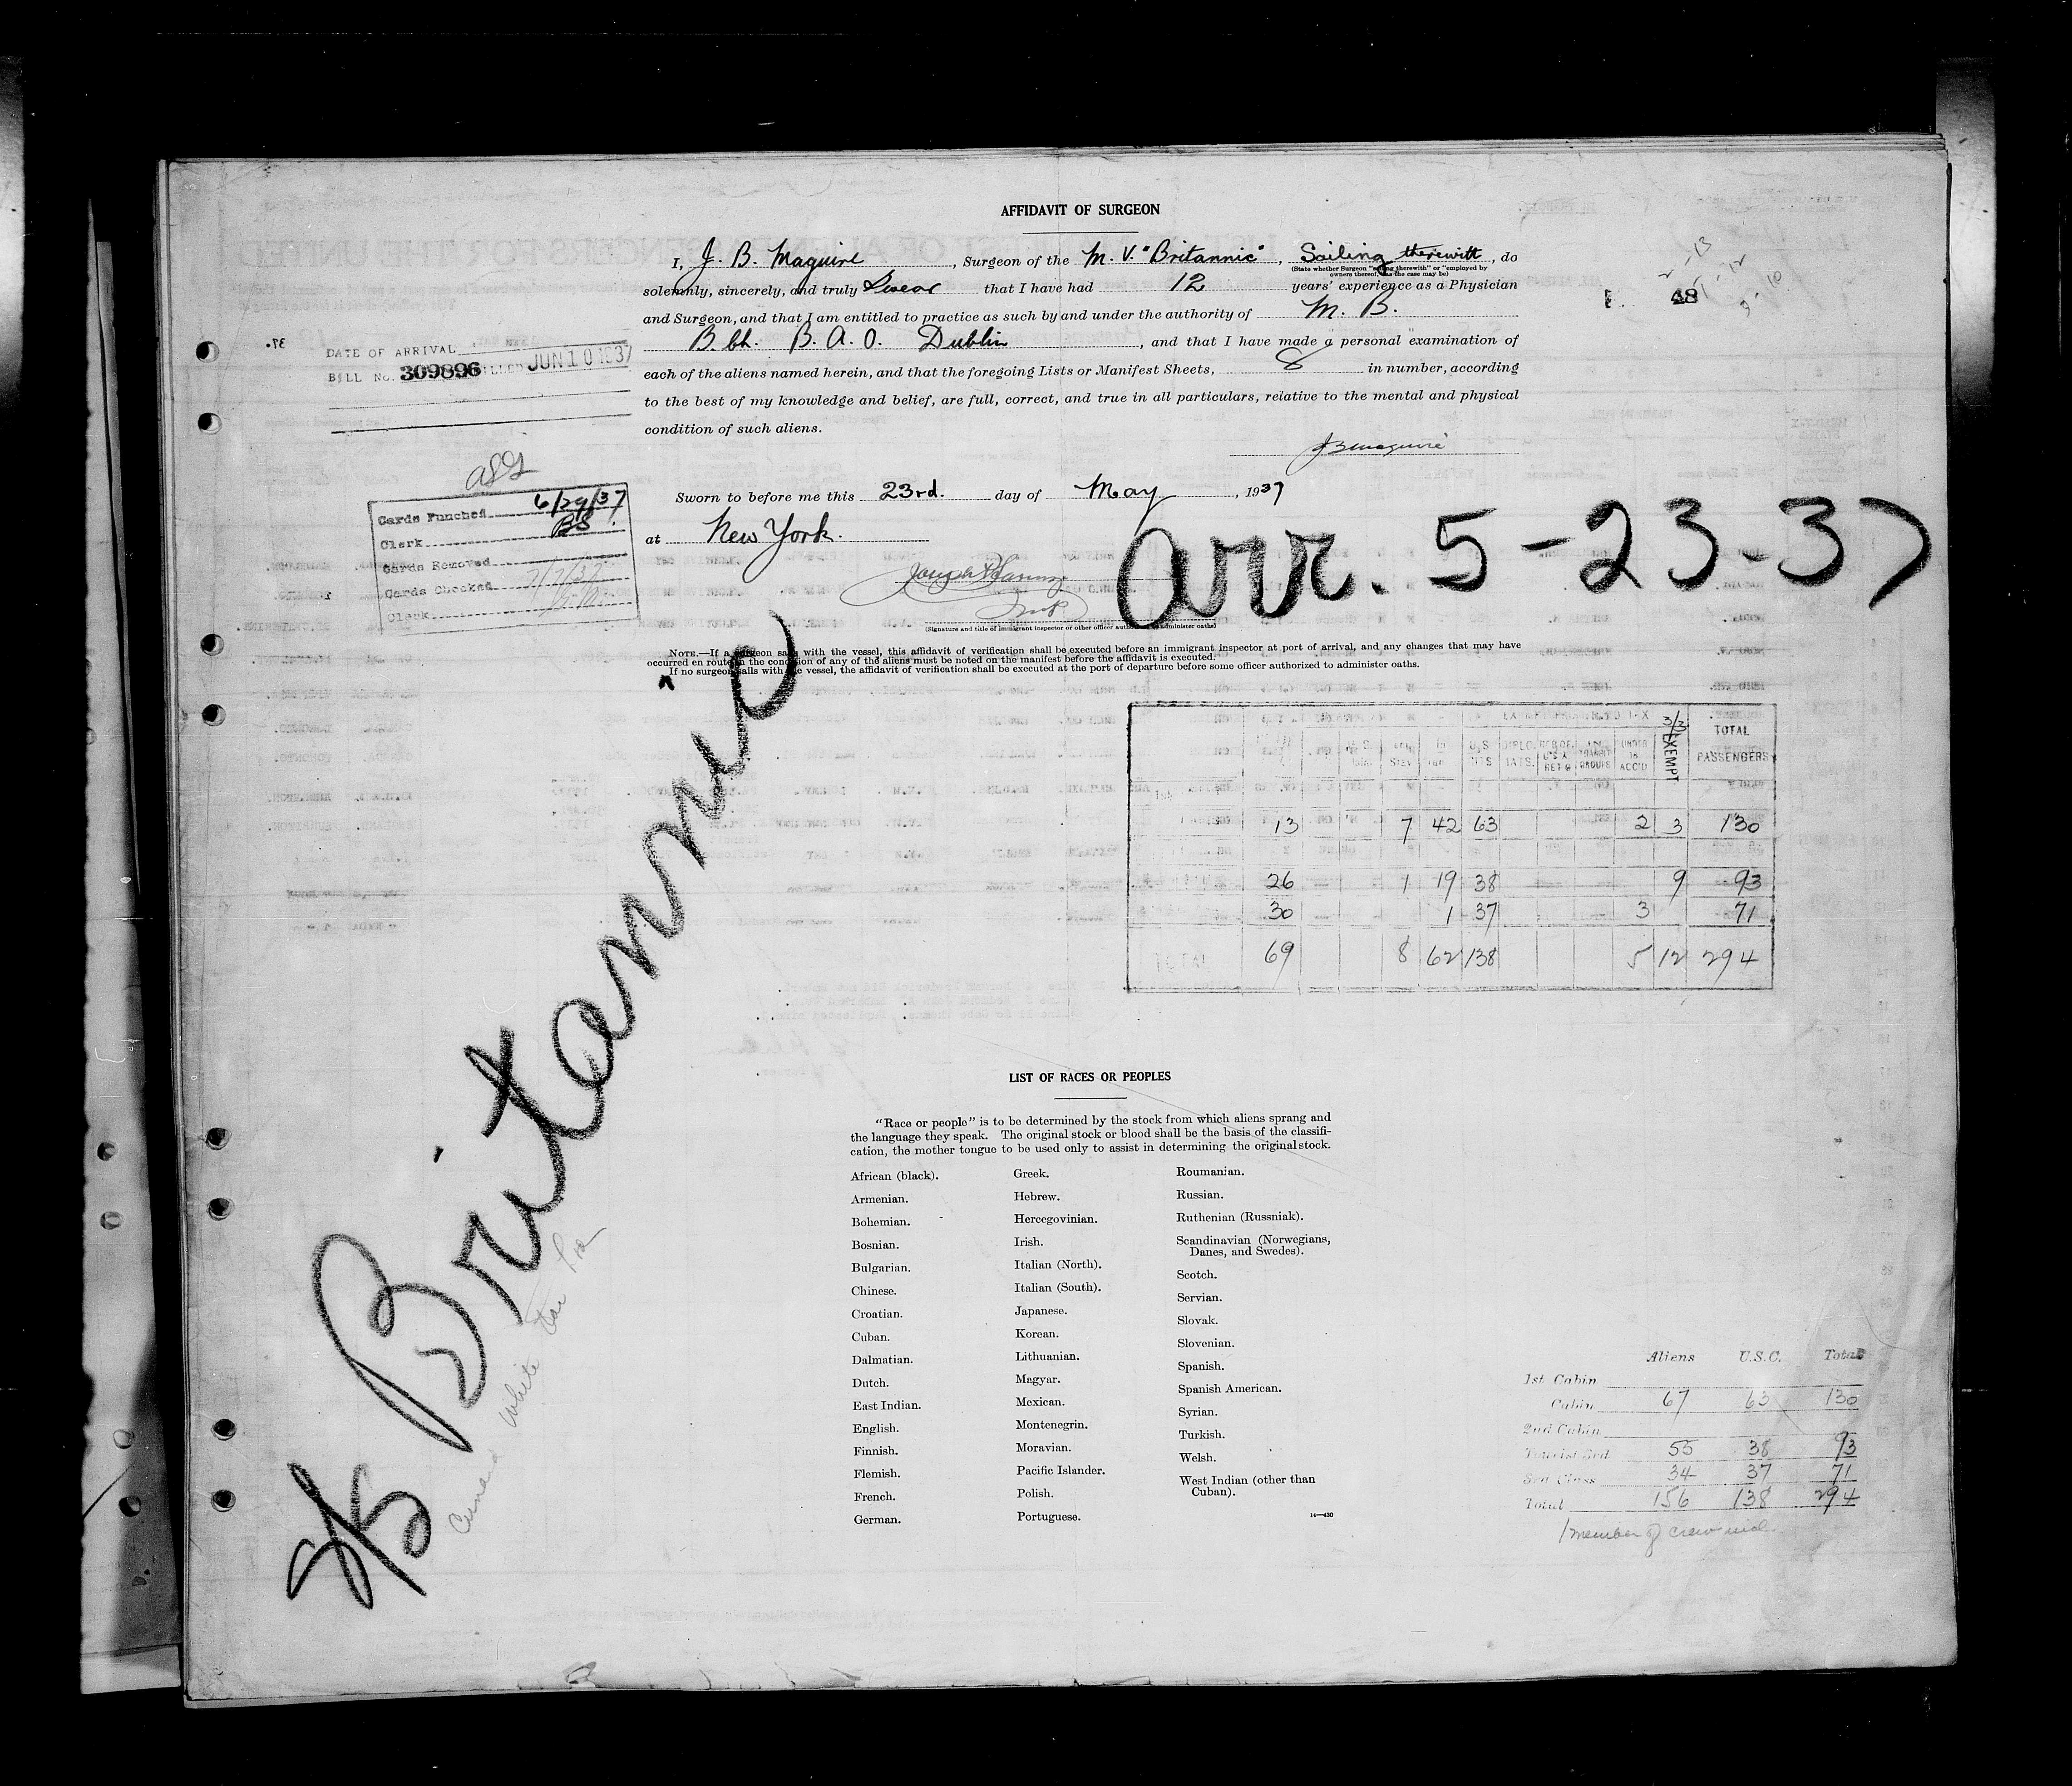 AFFIDAVIT OF SURGEON
I, J. B. Maguire, Surgeon of the M. V. "Britannic", Sailing therewith, do
(State whether Surgeon "sailing therewith" or "employed by
owners thereof," as the case may be)
solemnly, sincerely, and truly Swear that I have had 12 years' experience as a Physician
and Surgeon, and that I am entitled to practice as such by and under the authority of M. B.
B. Ch. B. A. O. Dublin, and that I have made a personal examination of
each of the aliens named herein, and that the foregoing Lists or Manifest Sheets, 8 in number, according
to the best of my knowledge and belief, are full, correct, and true in all particulars, relative to the mental and physical
condition of such aliens.
J B Maguire
48
2-13
1-12
3-10
DATE OF ARRIVAL
BILL NO. 309896 JUN 10 1937
Cards Punched 6/29/37
Clerk BS
Cards Removed
Cards Checked 7/7/37
Clerk
Sworn to before me this 23rd. day of May, 1937
at New York.
arr. 5-23-37
(Signature and title of immigrant inspector or other officer authorized to administer oaths)
NOTE.—If a surgeon sails with the vessel, this affidavit of verification shall be executed before an immigrant inspector at port of arrival, and any changes that may have
occurred en route in the condition of any of the aliens must be noted on the manifest before the affidavit is executed.
If no surgeon sails with the vessel, the affidavit of verification shall be executed at the port of departure before some officer authorized to administer oaths.
U.S. UNDER 16 ACCID 3/3 EXEMPT TOTAL PASSENGERS
13 7 42 63 2 3 130
26 1 19 38 9 93
30 1 37 3 71
TOTAL 69 8 62 138 5 12 294
Britannic
Cunard White Star
LIST OF RACES OR PEOPLES
"Race or people" is to be determined by the stock from which aliens sprang and
the language they speak. The original stock or blood shall be the basis of the classifi-
cation, the mother tongue to be used only to assist in determining the original stock.
African (black).
Armenian.
Bohemian.
Bosnian.
Bulgarian.
Chinese.
Croatian.
Cuban.
Dalmatian.
Dutch.
East Indian.
English.
Finnish.
Flemish.
French.
German.
Greek.
Hebrew.
Hercegovinian.
Irish.
Italian (North).
Italian (South).
Japanese.
Korean.
Lithuanian.
Magyar.
Mexican.
Montenegrin.
Moravian.
Pacific Islander.
Polish.
Portuguese.
Roumanian.
Russian.
Ruthenian (Russniak).
Scandinavian (Norwegians,
Danes, and Swedes).
Scotch.
Servian.
Slovak.
Slovenian.
Spanish.
Spanish American.
Syrian.
Turkish.
Welsh.
West Indian (other than
Cuban).
14—430
Aliens U.S.C. Total
1st Cabin
Cabin 67 63 130
2nd Cabin
Tourist 3rd 55 38 93
3rd Class 34 37 71
Total 156 138 294
1 member of crew incl.